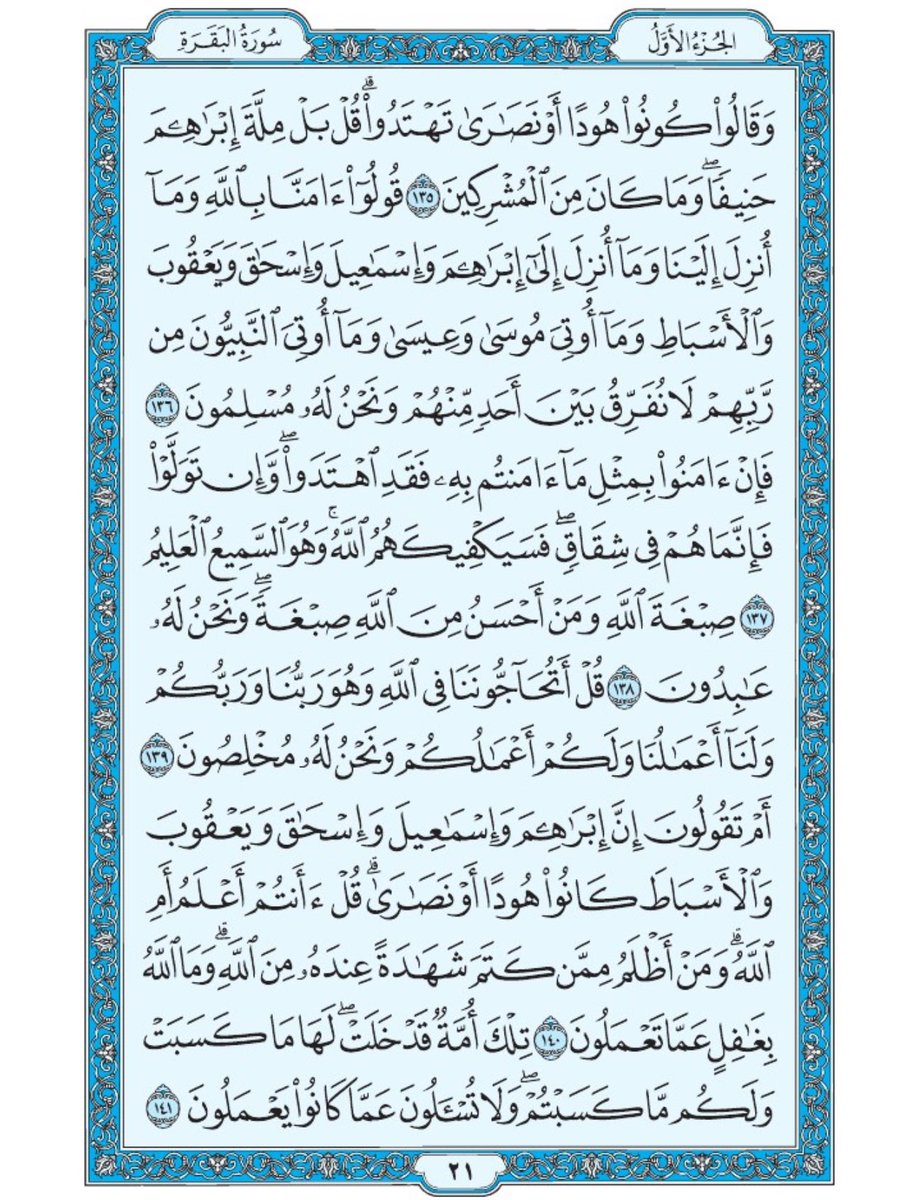 الجُزْءُ الأَوَّلُ
سُورَةُ البَقَرَةِ
وَقَالُوا۟ كُونُوا۟ هُودًا أَوْ نَصَـٰرَىٰ تَهْتَدُوا۟ ۗ قُلْ بَلْ مِلَّةَ إِبْرَٰهِـۧمَ
حَنِيفًا ۖ وَمَا كَانَ مِنَ ٱلْمُشْرِكِينَ ١٣٥ قُولُوٓا۟ ءَامَنَّا بِٱللَّهِ وَمَآ
أُنزِلَ إِلَيْنَا وَمَآ أُنزِلَ إِلَىٰٓ إِبْرَٰهِـۧمَ وَإِسْمَـٰعِيلَ وَإِسْحَـٰقَ وَيَعْقُوبَ
وَٱلْأَسْبَاطِ وَمَآ أُوتِىَ مُوسَىٰ وَعِيسَىٰ وَمَآ أُوتِىَ ٱلنَّبِيُّونَ مِن
رَّبِّهِمْ لَا نُفَرِّقُ بَيْنَ أَحَدٍ مِّنْهُمْ وَنَحْنُ لَهُۥ مُسْلِمُونَ ١٣٦
فَإِنْ ءَامَنُوا۟ بِمِثْلِ مَآ ءَامَنتُم بِهِۦ فَقَدِ ٱهْتَدَوا۟ ۖ وَّإِن تَوَلَّوْا۟
فَإِنَّمَا هُمْ فِى شِقَاقٍ ۖ فَسَيَكْفِيكَهُمُ ٱللَّهُ ۚ وَهُوَ ٱلسَّمِيعُ ٱلْعَلِيمُ
١٣٧ صِبْغَةَ ٱللَّهِ ۖ وَمَنْ أَحْسَنُ مِنَ ٱللَّهِ صِبْغَةً ۖ وَنَحْنُ لَهُۥ
عَـٰبِدُونَ ١٣٨ قُلْ أَتُحَآجُّونَنَا فِى ٱللَّهِ وَهُوَ رَبُّنَا وَرَبُّكُمْ
وَلَنَآ أَعْمَـٰلُنَا وَلَكُمْ أَعْمَـٰلُكُمْ وَنَحْنُ لَهُۥ مُخْلِصُونَ ١٣٩
أَمْ تَقُولُونَ إِنَّ إِبْرَٰهِـۧمَ وَإِسْمَـٰعِيلَ وَإِسْحَـٰقَ وَيَعْقُوبَ
وَٱلْأَسْبَاطَ كَانُوا۟ هُودًا أَوْ نَصَـٰرَىٰ ۗ قُلْ ءَأَنتُمْ أَعْلَمُ أَمِ
ٱللَّهُ ۗ وَمَنْ أَظْلَمُ مِمَّن كَتَمَ شَهَـٰدَةً عِندَهُۥ مِنَ ٱللَّهِ ۗ وَمَا ٱللَّهُ
بِغَـٰفِلٍ عَمَّا تَعْمَلُونَ ١٤٠ تِلْكَ أُمَّةٌ قَدْ خَلَتْ ۖ لَهَا مَا كَسَبَتْ
وَلَكُم مَّا كَسَبْتُمْ ۖ وَلَا تُسْـَٔلُونَ عَمَّا كَانُوا۟ يَعْمَلُونَ ١٤١
٢١